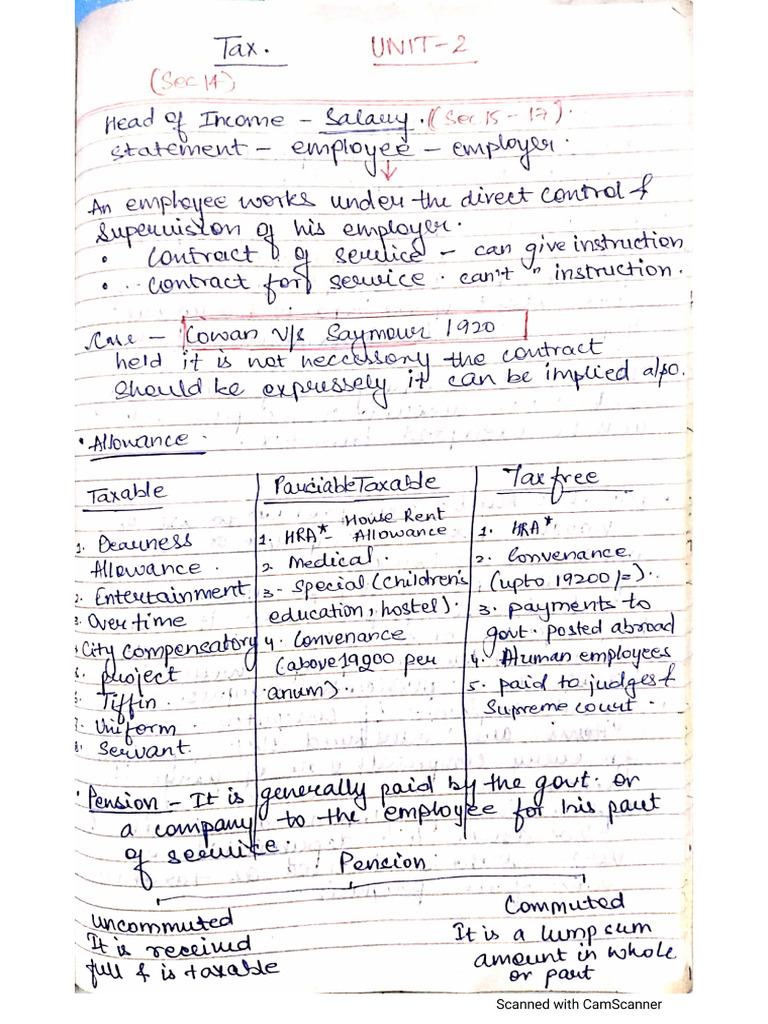 Tax. UNIT-2
(Sec 14)
Head of Income - Salary. (Sec 15-17).
statement - employee - employer.
An employee works under the direct control &
supervision of his employer.
• Contract of service - can give instruction
• Contract for service. can't " instruction.
Case - Cowan v/s Saymour 1920
held it is not neccessory the contract
should be expressely it can be implied also.
• Allowance.
Taxable
1. Dearness
Allowance.
2. Entertainment
3. Over time
4. City compensatory
5. project
6. Tiffin.
7. Uniform
8. Servant.
Parciable Taxable
1. HRA* - House Rent
Allowance
2. Medical.
3. Special (children's
education, hostel).
4. Convenance
(above 19200 per
anum).
Tax free
1. HRA*
2. Convenance
(upto 19200/=).
3. payments to
govt. posted abroad
4. Human employees
5. paid to judges &
Supreme court.
• Pension - It is generally paid by the govt. or
a company to the employee for his part
of service.
Pension
Uncommuted
It is received
full & is taxable
Commuted
It is a lump sum
amount in whole
or part
Scanned with CamScanner